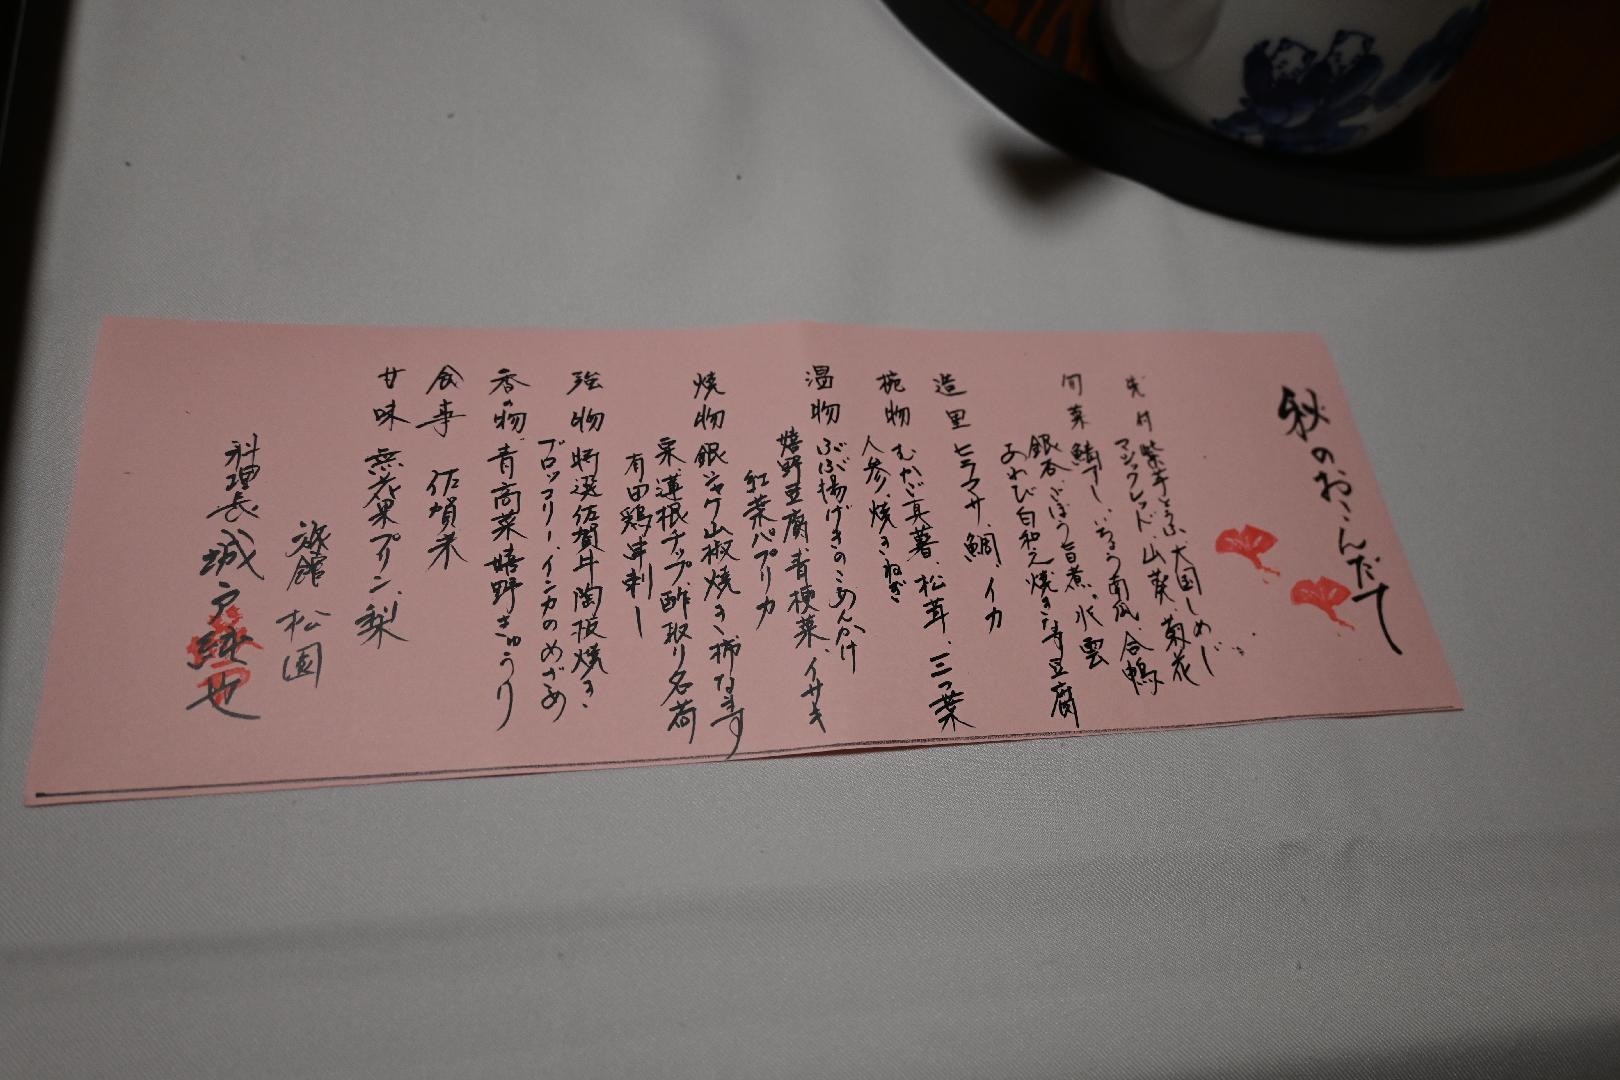 秋のおこんだて
先付 紫芋とうふ、大国しめじ
マジックレッド、山葵、菊花
旬菜 鱚干し、いちょう南瓜、合鴨
銀杏、ごぼう旨煮、水雲
あわび白和え焼き胡麻豆腐
造里 ヒラマサ、鯛、イカ
椀物 むかご真薯、松茸、三つ葉
人参、焼きねぎ
温物 ぶぶ揚げきのこあんかけ
嬉野豆腐、青梗菜、イサキ
紅葉パプリカ
焼物 銀シャケ山椒焼き、柿なます
栗、蓮根チップ、酢取り名荷
有田鶏串刺し
強物 特選佐賀牛陶板焼き、
ブロッコリー、インカのめざめ
香の物 青高菜 嬉野きゅうり
食事 佐賀米
甘味 無花果プリン、梨
旅館 松園
料理長 城戸 純也